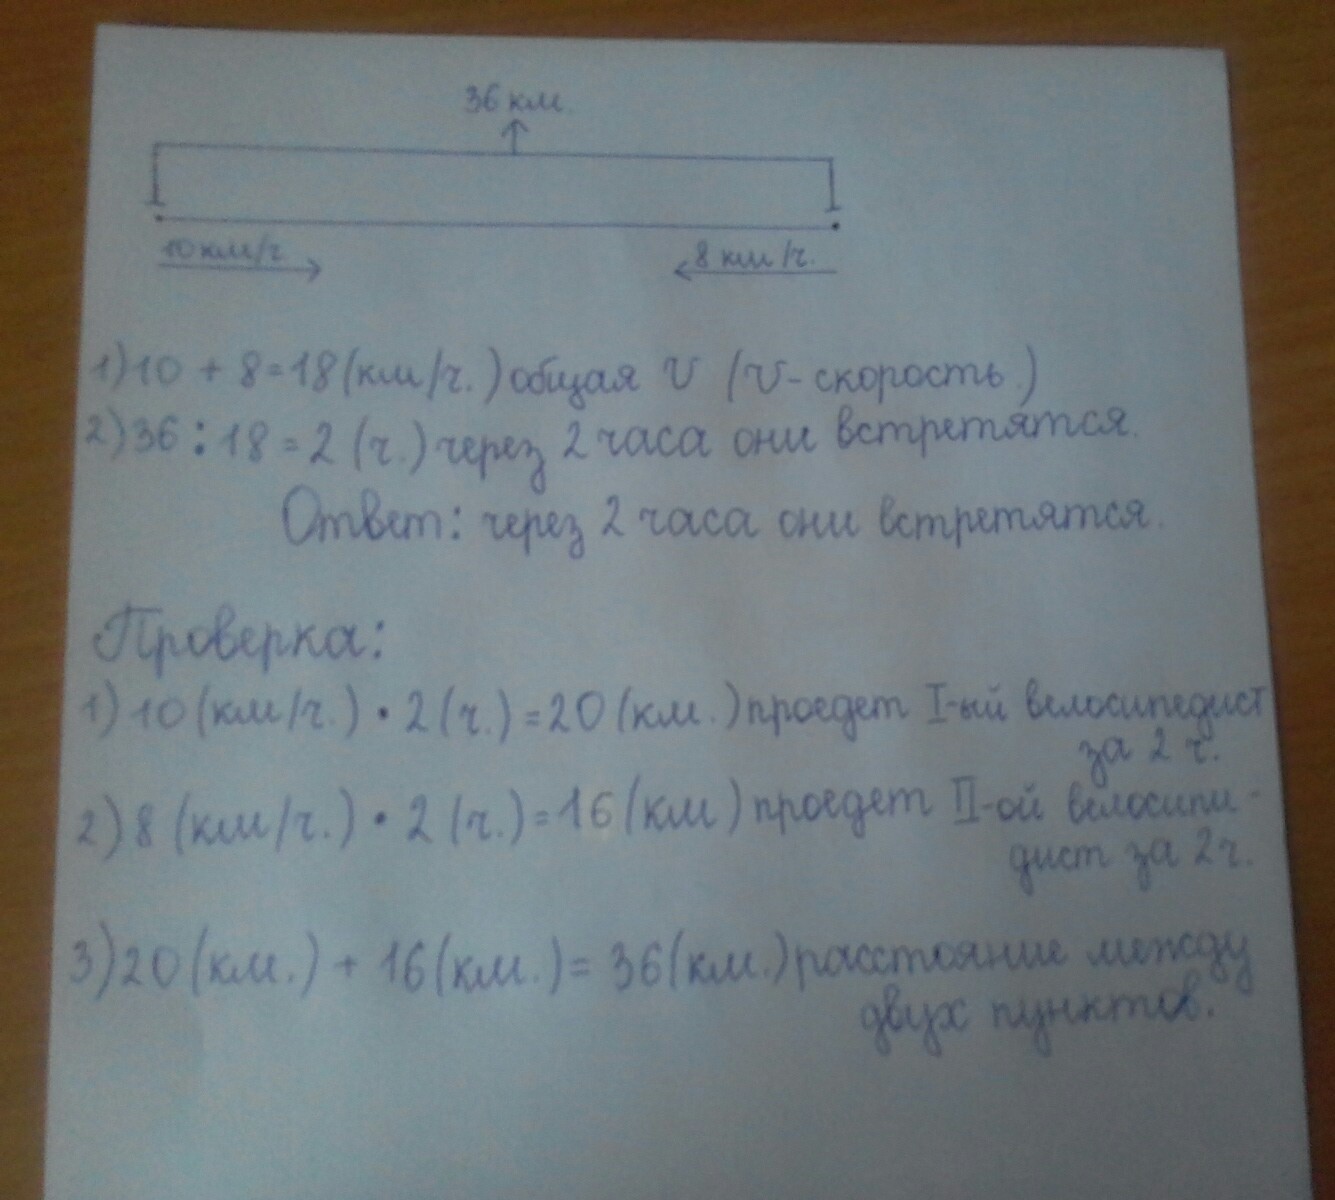 36 км.
10 км/ч
8 км/ч.
1) 10 + 8 = 18 (км/ч.) общая v (v - скорость.)
2) 36 : 18 = 2 (ч.) через 2 часа они встретятся.
Ответ: через 2 часа они встретятся.
Проверка:
1) 10 (км/ч.) • 2 (ч.) = 20 (км.) проедет I-ый велосипедист
за 2 ч.
2) 8 (км/ч.) • 2 (ч.) = 16 (км) проедет II-ой велосипи-
дист за 2 ч.
3) 20 (км.) + 16 (км.) = 36 (км.) расстояние между
двух пунктов.